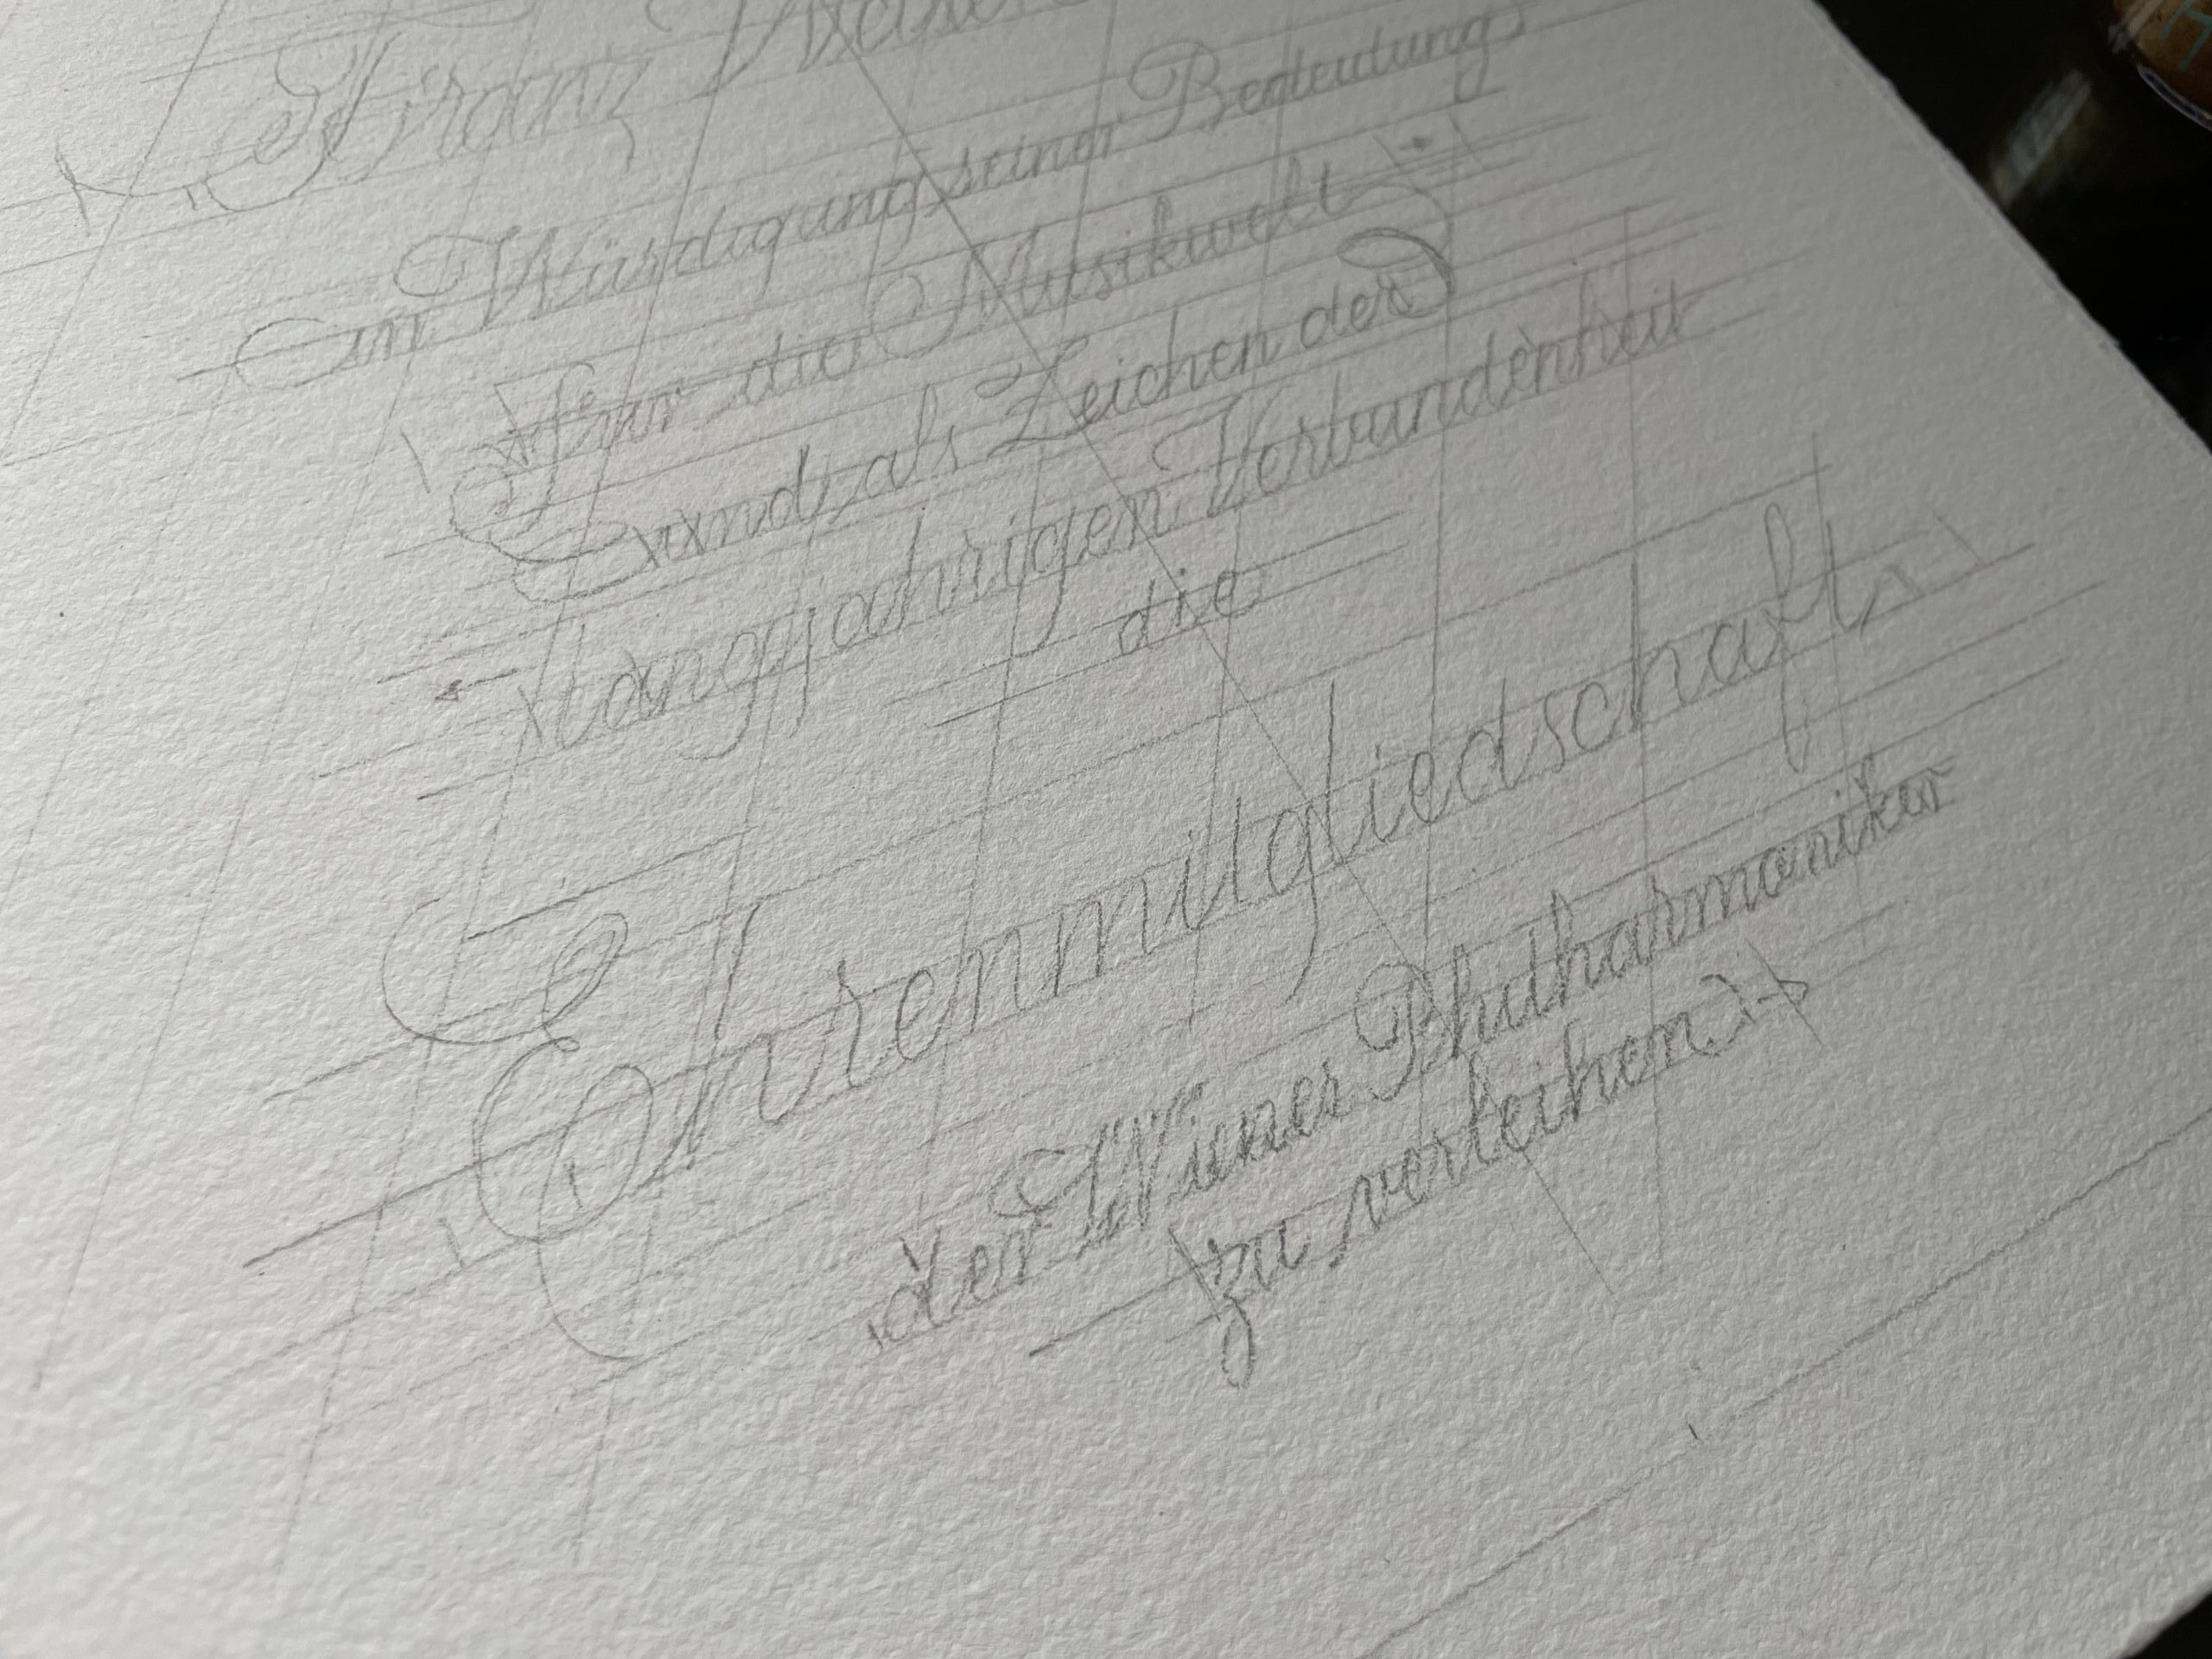 Franz
in Würdigung seiner Bedeutung
für die Musikwelt
und als Zeichen der
langjährigen Verbundenheit
die
Ehrenmitgliedschaft
der Wiener Philharmoniker
zu verleihen.